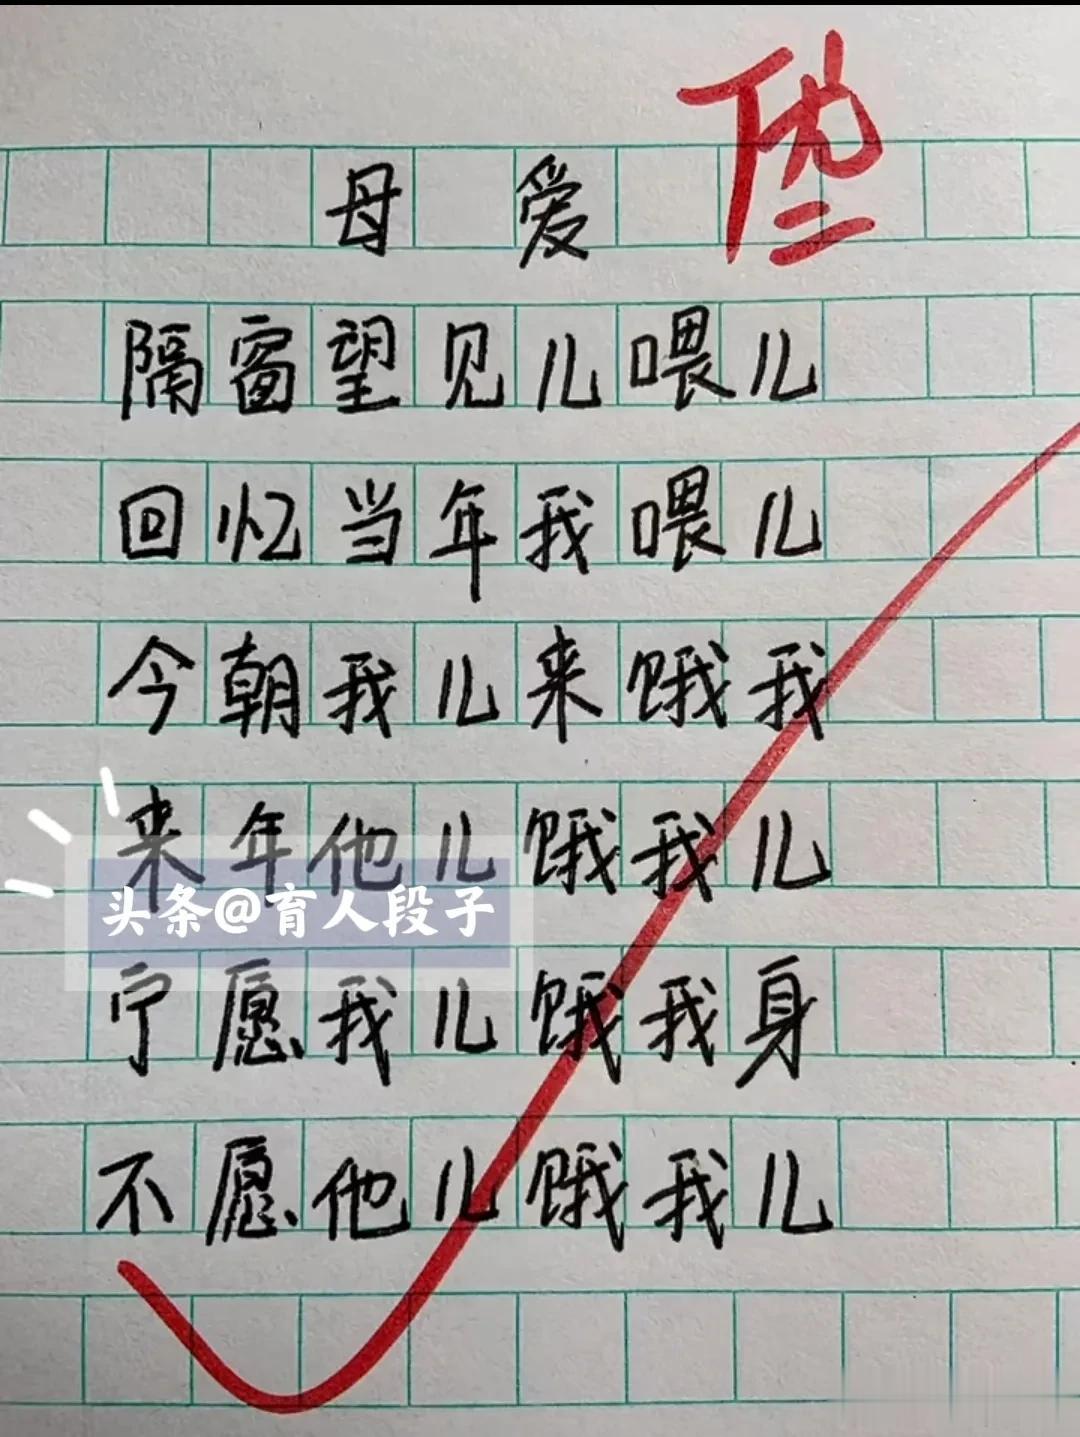 优
母爱
隔窗望见儿喂儿
回忆当年我喂儿
今朝我儿来饿我
来年他儿饿我儿
头条@育人段子
宁愿我儿饿我身
不愿他儿饿我儿